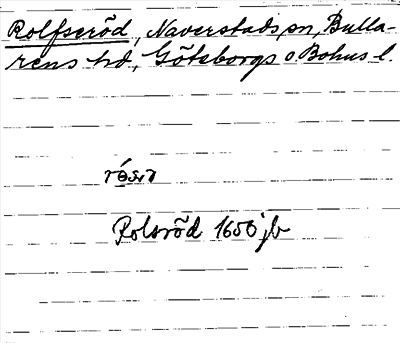 Rolfseröd, Naverstads sn, Bulla-
rens hd, Göteborgs o Bohus l.
Rolsröd 1650 jb